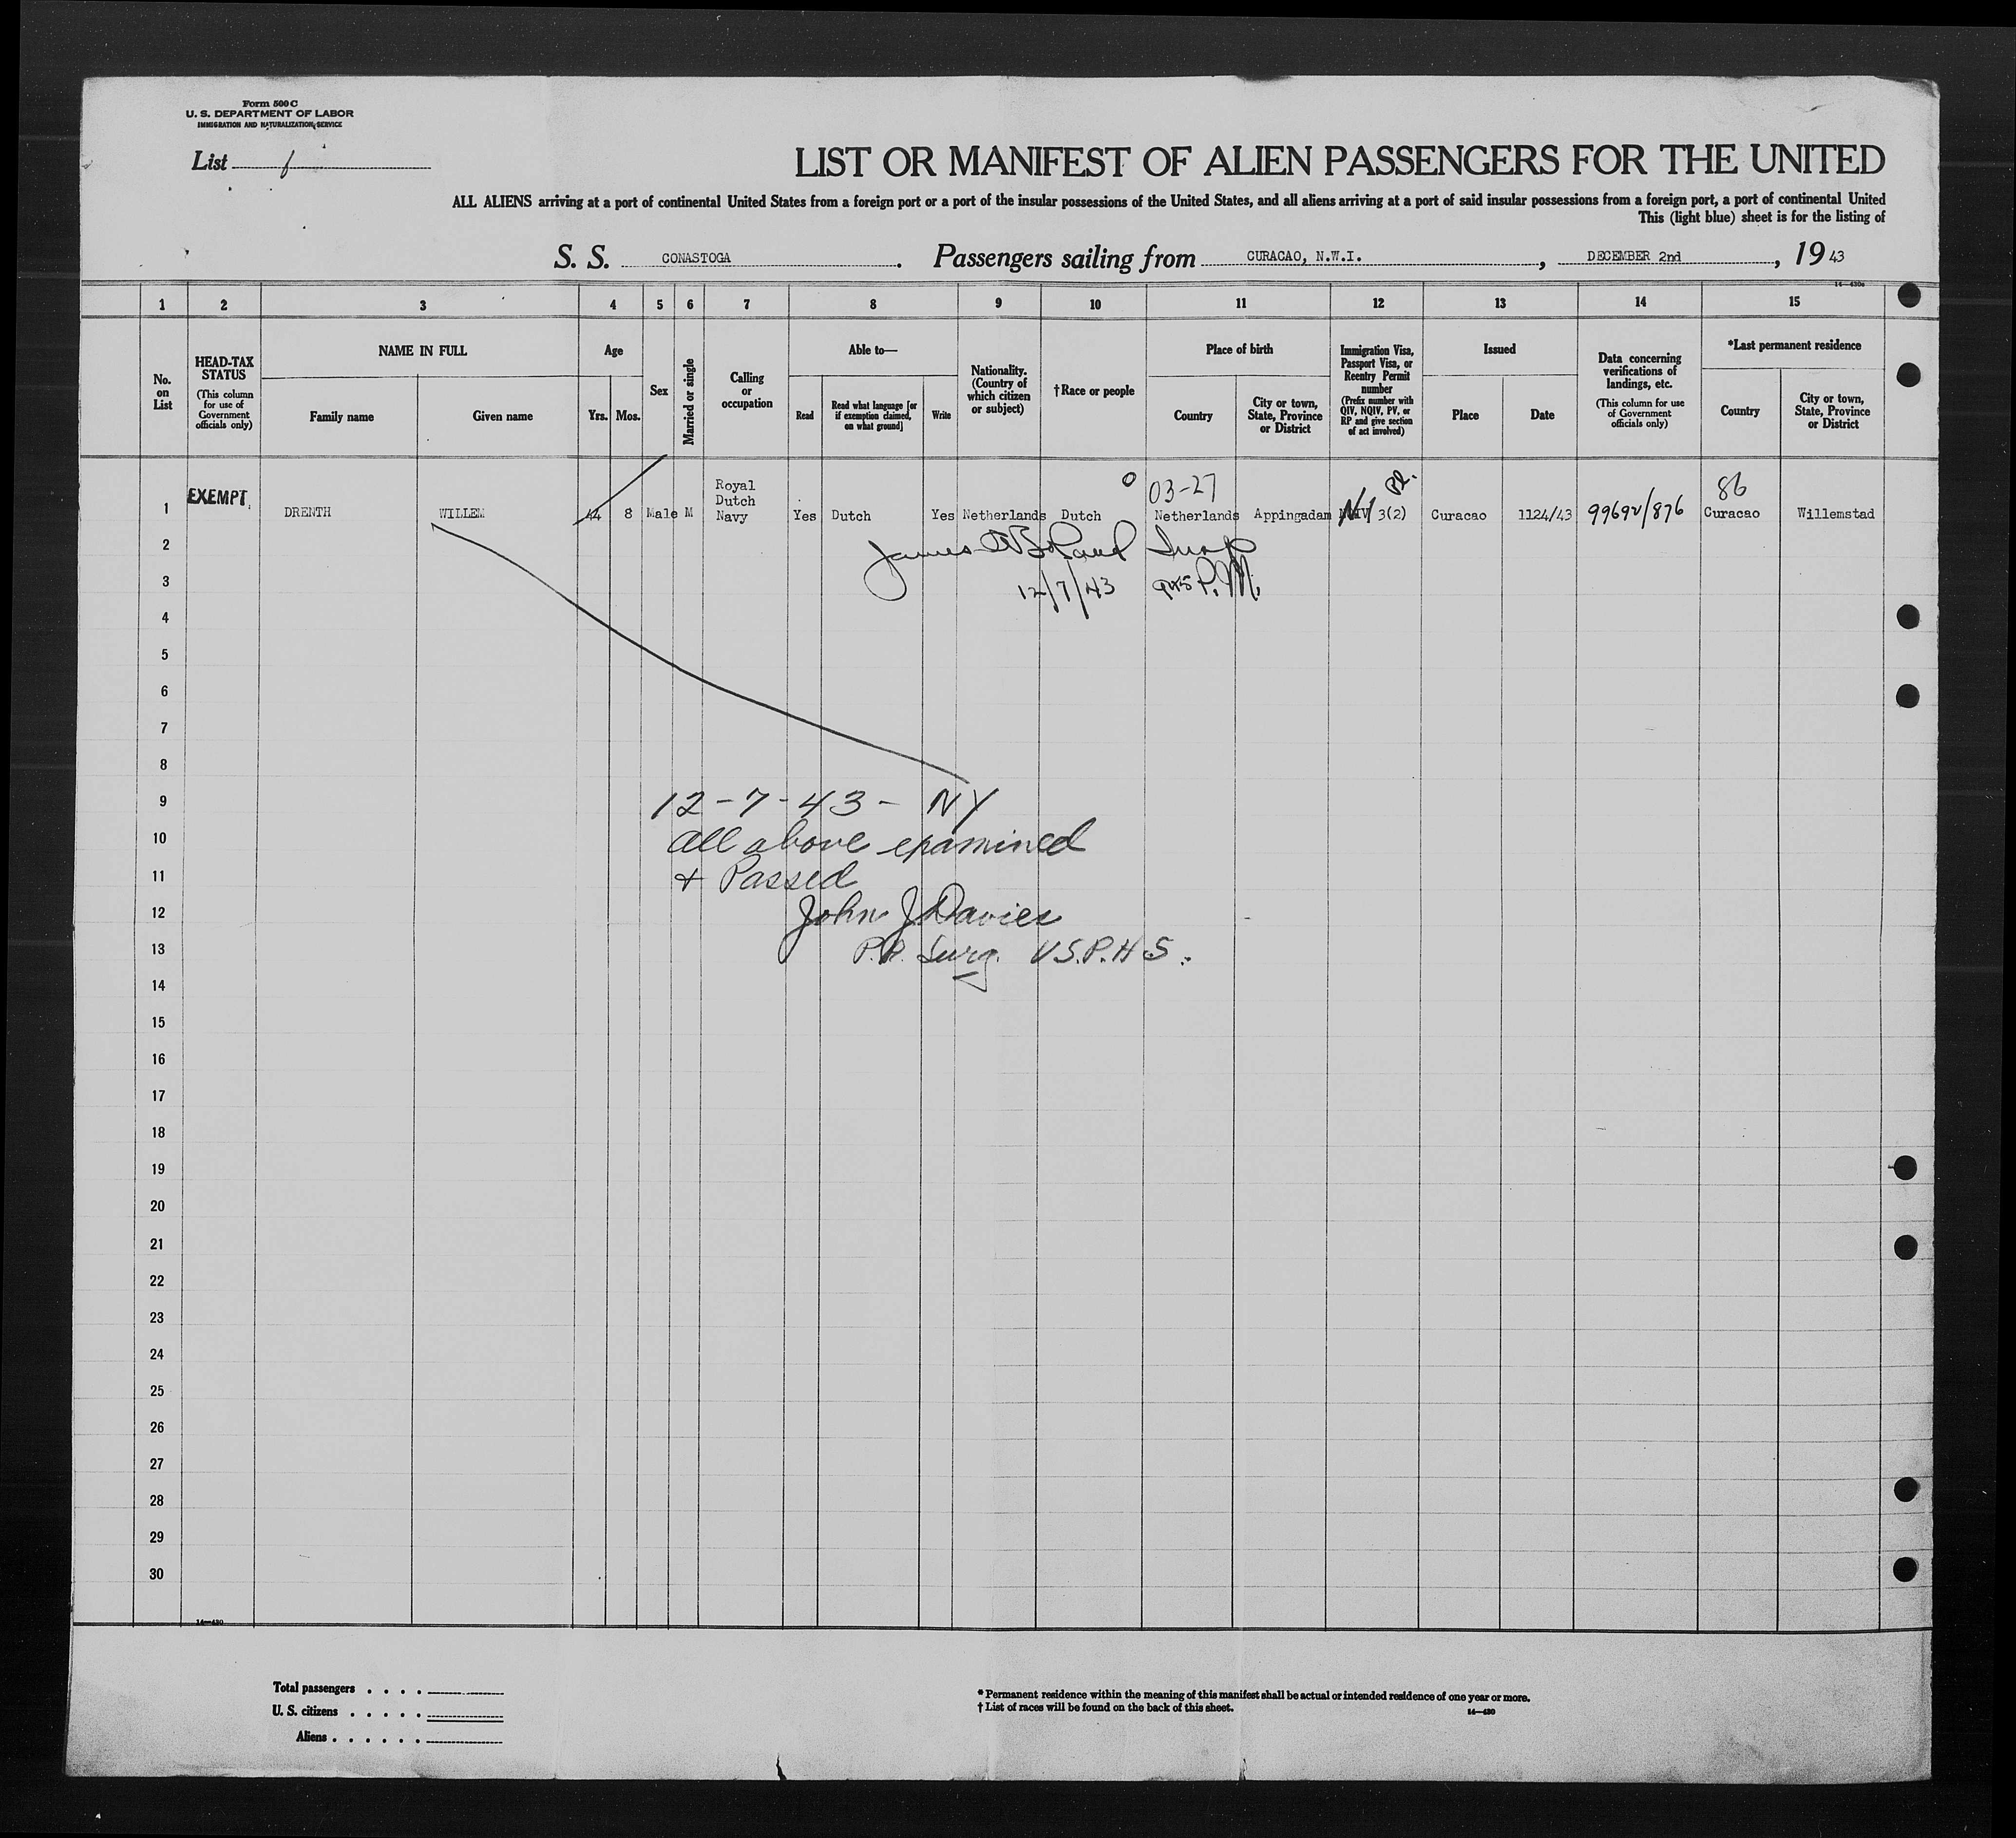 Form 500 C
U. S. DEPARTMENT OF LABOR
IMMIGRATION AND NATURALIZATION SERVICE
List 1
LIST OR MANIFEST OF ALIEN PASSENGERS FOR THE UNITED
ALL ALIENS arriving at a port of continental United States from a foreign port or a port of the insular possessions of the United States, and all aliens arriving at a port of said insular possessions from a foreign port, a port of continental United
This (light blue) sheet is for the listing of
S. S. CONASTOGA. Passengers sailing from CURACAO, N.W.I., DECEMBER 2nd, 1943
14—430a
1 2 3 4 5 6 7 8 9 10 11 12 13 14 15
No. on List
HEAD-TAX STATUS
(This column for use of Government officials only)
NAME IN FULL
Family name
Given name
Age
Yrs. Mos.
Sex
Married or single
Calling or occupation
Able to—
Read
Read what language [or if exemption claimed, on what ground]
Write
Nationality. (Country of which citizen or subject)
†Race or people
Place of birth
Country
City or town, State, Province or District
Immigration Visa, Passport Visa, or Reentry Permit number
(Prefix number with QIV, NQIV, PV, or RP and give section of act involved)
Issued
Place
Date
Data concerning verifications of landings, etc.
(This column for use of Government officials only)
*Last permanent residence
Country
City or town, State, Province or District
03-27 86
1 EXEMPT DRENTH WILLEM 44 8 Male M Royal Dutch Navy Yes Dutch Yes Netherlands Dutch Netherlands Appingadam 3(2) Curacao 1124/43 Curacao Willemstad
2 James Insp
3 12/7/43 945 P.M.
4
5
6
7
8
9 12-7-43- NY
10 All above examined
11 + Passed
12 John J Davies
13 Surg. U.S.P.H.S.
14
15
16
17
18
19
20
21
22
23
24
25
26
27
28
29
30
14—430
Total passengers . . . .
U. S. citizens . . . . .
Aliens . . . . . .
* Permanent residence within the meaning of this manifest shall be actual or intended residence of one year or more.
† List of races will be found on the back of this sheet.
14—430